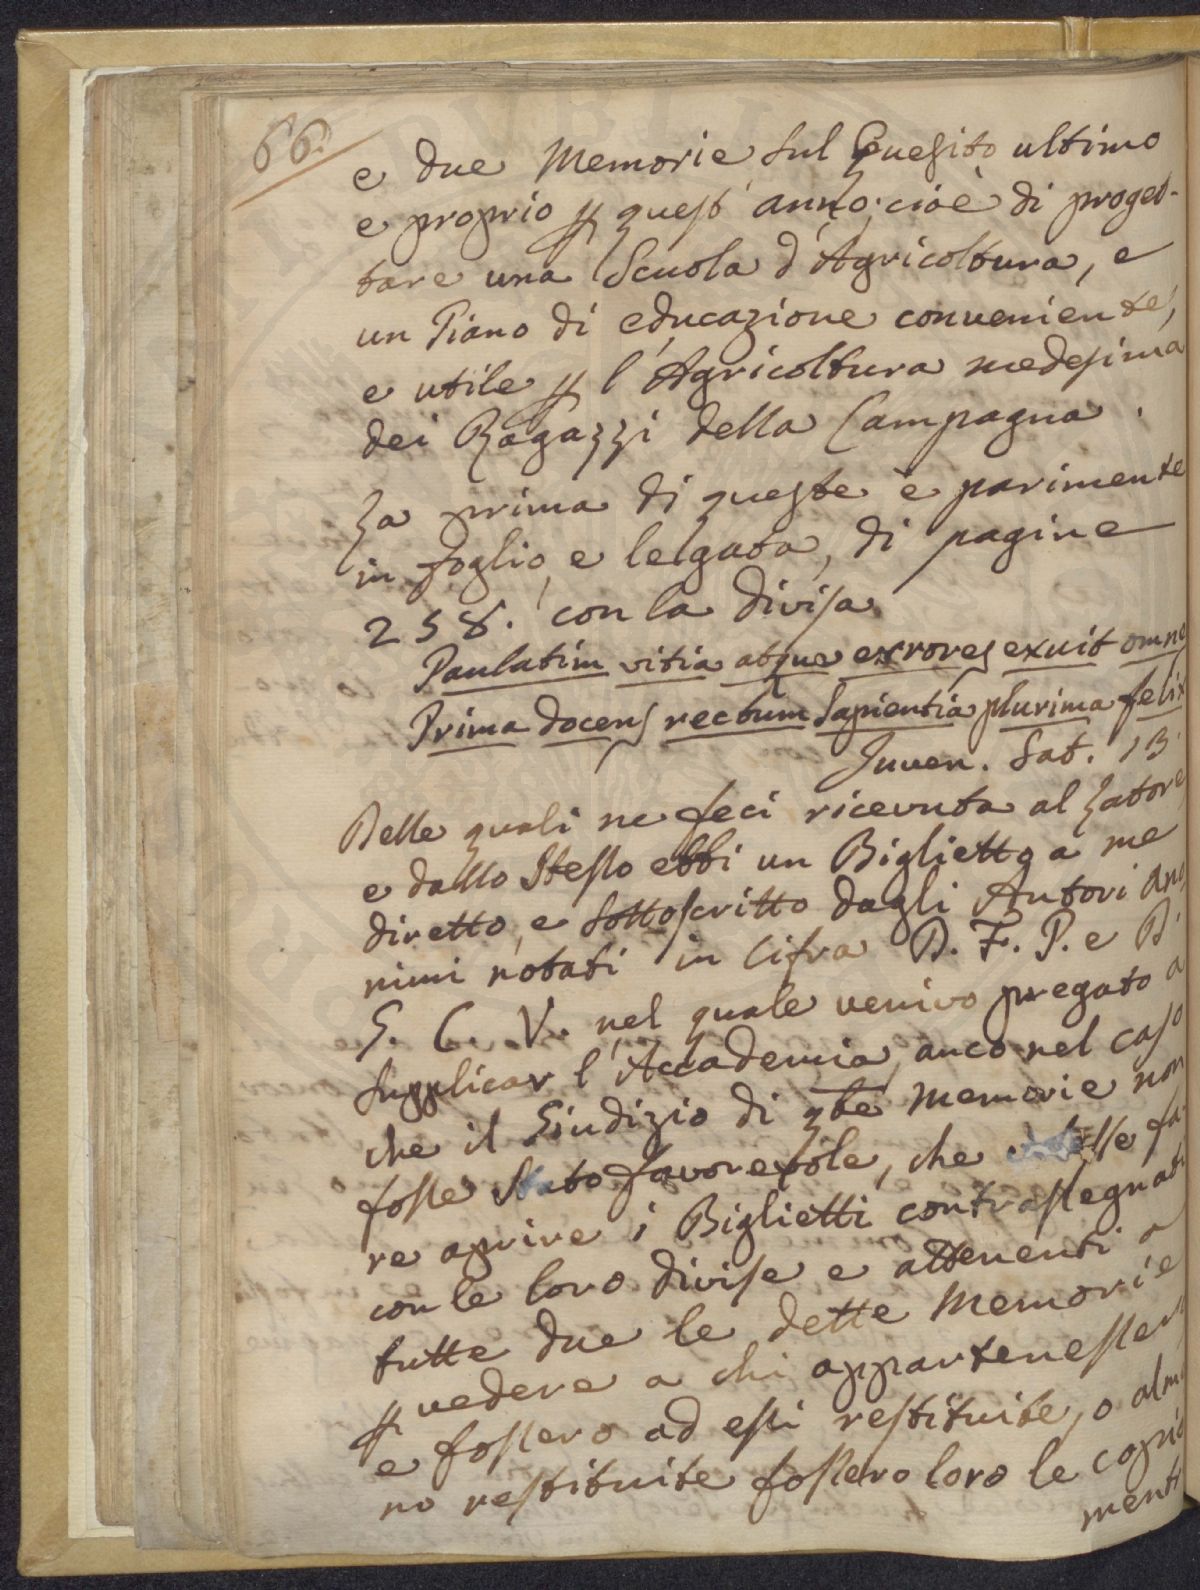 66.
e due Memorie sul Quesito ultimo
e proprio p quest' anno; cioè di proget-
tare una Scuola d'Agricoltura, e
un Piano di educazione conveniente,
e utile p l'Agricoltura medesima
dei Ragazzi della Campagna.
La prima di queste è parimente
in foglio, e legata, di pagine
258. con la divisa
Paulatim vitia atque errores exuit omnes
Prima docens rectum Sapientia plurima felix
Juven. Sat. 13.
Delle quali ne feci ricevuta al Latore
e dallo Stesso ebbi un Biglietto a me
diretto, e sottoscritto dagli Autori Ano
nimi notati in Cifra D. F. P. e D.
G. C. V. nel quale venivo pregato a
supplicar l'Accademia, anco nel caso
che il Giudizio di qte Memorie non
fosse stato favorevole, che fa-
re aprire i Biglietti contrassegnati
con le loro divise e attenenti a
tutte due le dette Memorie
p vedere a chi appartenessero
e fossero ad essi restituite, o alme
no restituite fossero loro le copie
menti